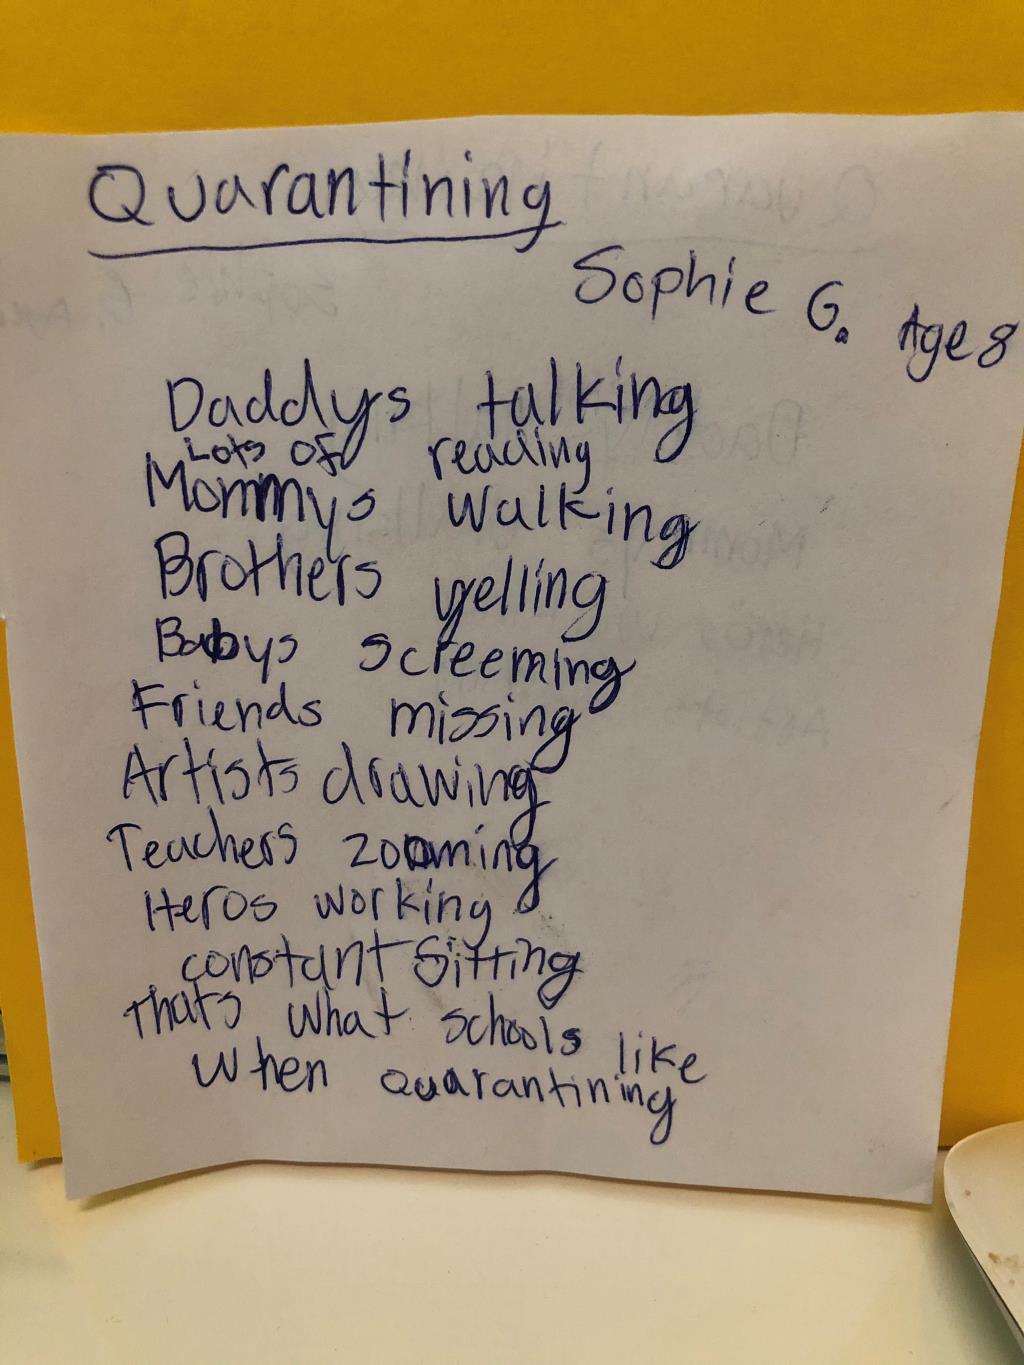 Quarantining
Sophie G. Age 8
Daddys talking
Lots of reading
Mommys walking
Brothers yelling
Babys screeming
Friends missing
Artists drawing
Teachers zooming
Heros working
constant sitting
Thats what schools like
when quarantining